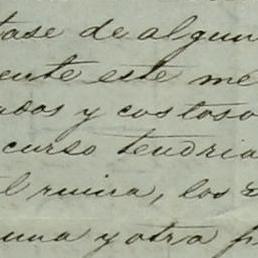 tase de algun
ente este me
ados y costoso
curso tendria
l ruina, los
una y otra p